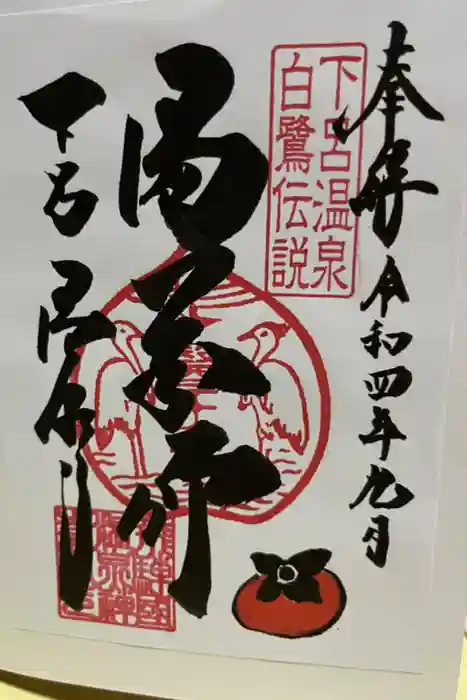 奉拝 令和四年九月
下呂温泉
白鷺伝説
湯薬師
下呂 温泉寺